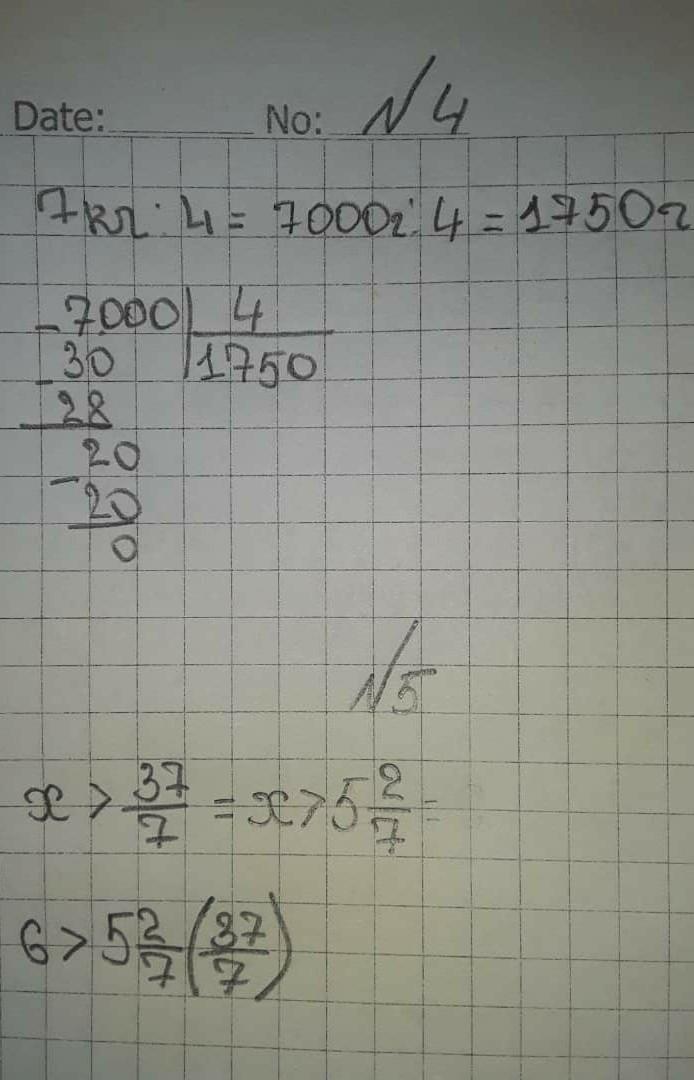 Date: No: №4
7кг : 4 = 7000г : 4 = 1750г
- 7000 | 4
- 30 | 1750
28
20
- 20
0
№5
x > 37/7 = x > 5 2/7 =
6 > 5 2/7 (37/7)